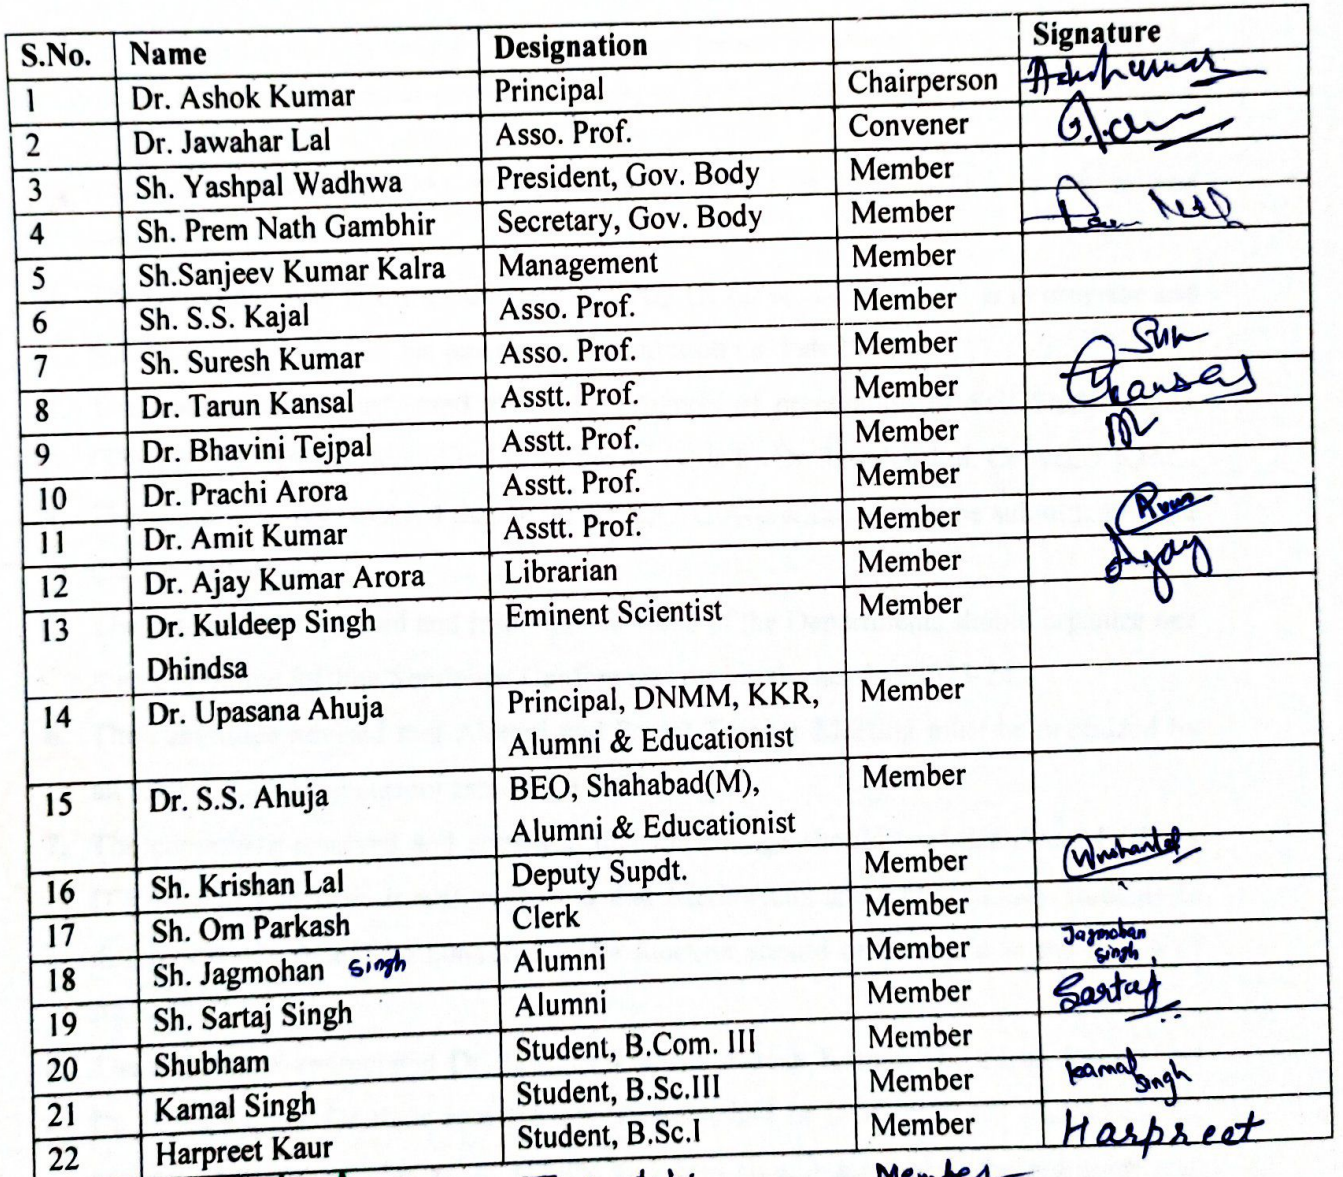 S.No. Name Designation Signature
1 Dr. Ashok Kumar Principal Chairperson Ashokumar
2 Dr. Jawahar Lal Asso. Prof. Convener
3 Sh. Yashpal Wadhwa President, Gov. Body Member
4 Sh. Prem Nath Gambhir Secretary, Gov. Body Member Nath
5 Sh.Sanjeev Kumar Kalra Management Member
6 Sh. S.S. Kajal Asso. Prof. Member
7 Sh. Suresh Kumar Asso. Prof. Member
8 Dr. Tarun Kansal Asstt. Prof. Member
9 Dr. Bhavini Tejpal Asstt. Prof. Member
10 Dr. Prachi Arora Asstt. Prof. Member
11 Dr. Amit Kumar Asstt. Prof. Member
12 Dr. Ajay Kumar Arora Librarian Member Ajay
13 Dr. Kuldeep Singh Eminent Scientist Member
Dhindsa
14 Dr. Upasana Ahuja Principal, DNMM, KKR, Member
Alumni & Educationist
15 Dr. S.S. Ahuja BEO, Shahabad(M), Member
Alumni & Educationist
16 Sh. Krishan Lal Deputy Supdt. Member
17 Sh. Om Parkash Clerk Member
18 Sh. Jagmohan Singh Alumni Member Jagmohan
Singh
19 Sh. Sartaj Singh Alumni Member Sartaj
20 Shubham Student, B.Com. III Member
21 Kamal Singh Student, B.Sc.III Member Kamal
Singh
22 Harpreet Kaur Student, B.Sc.I Member Harpreet
Member